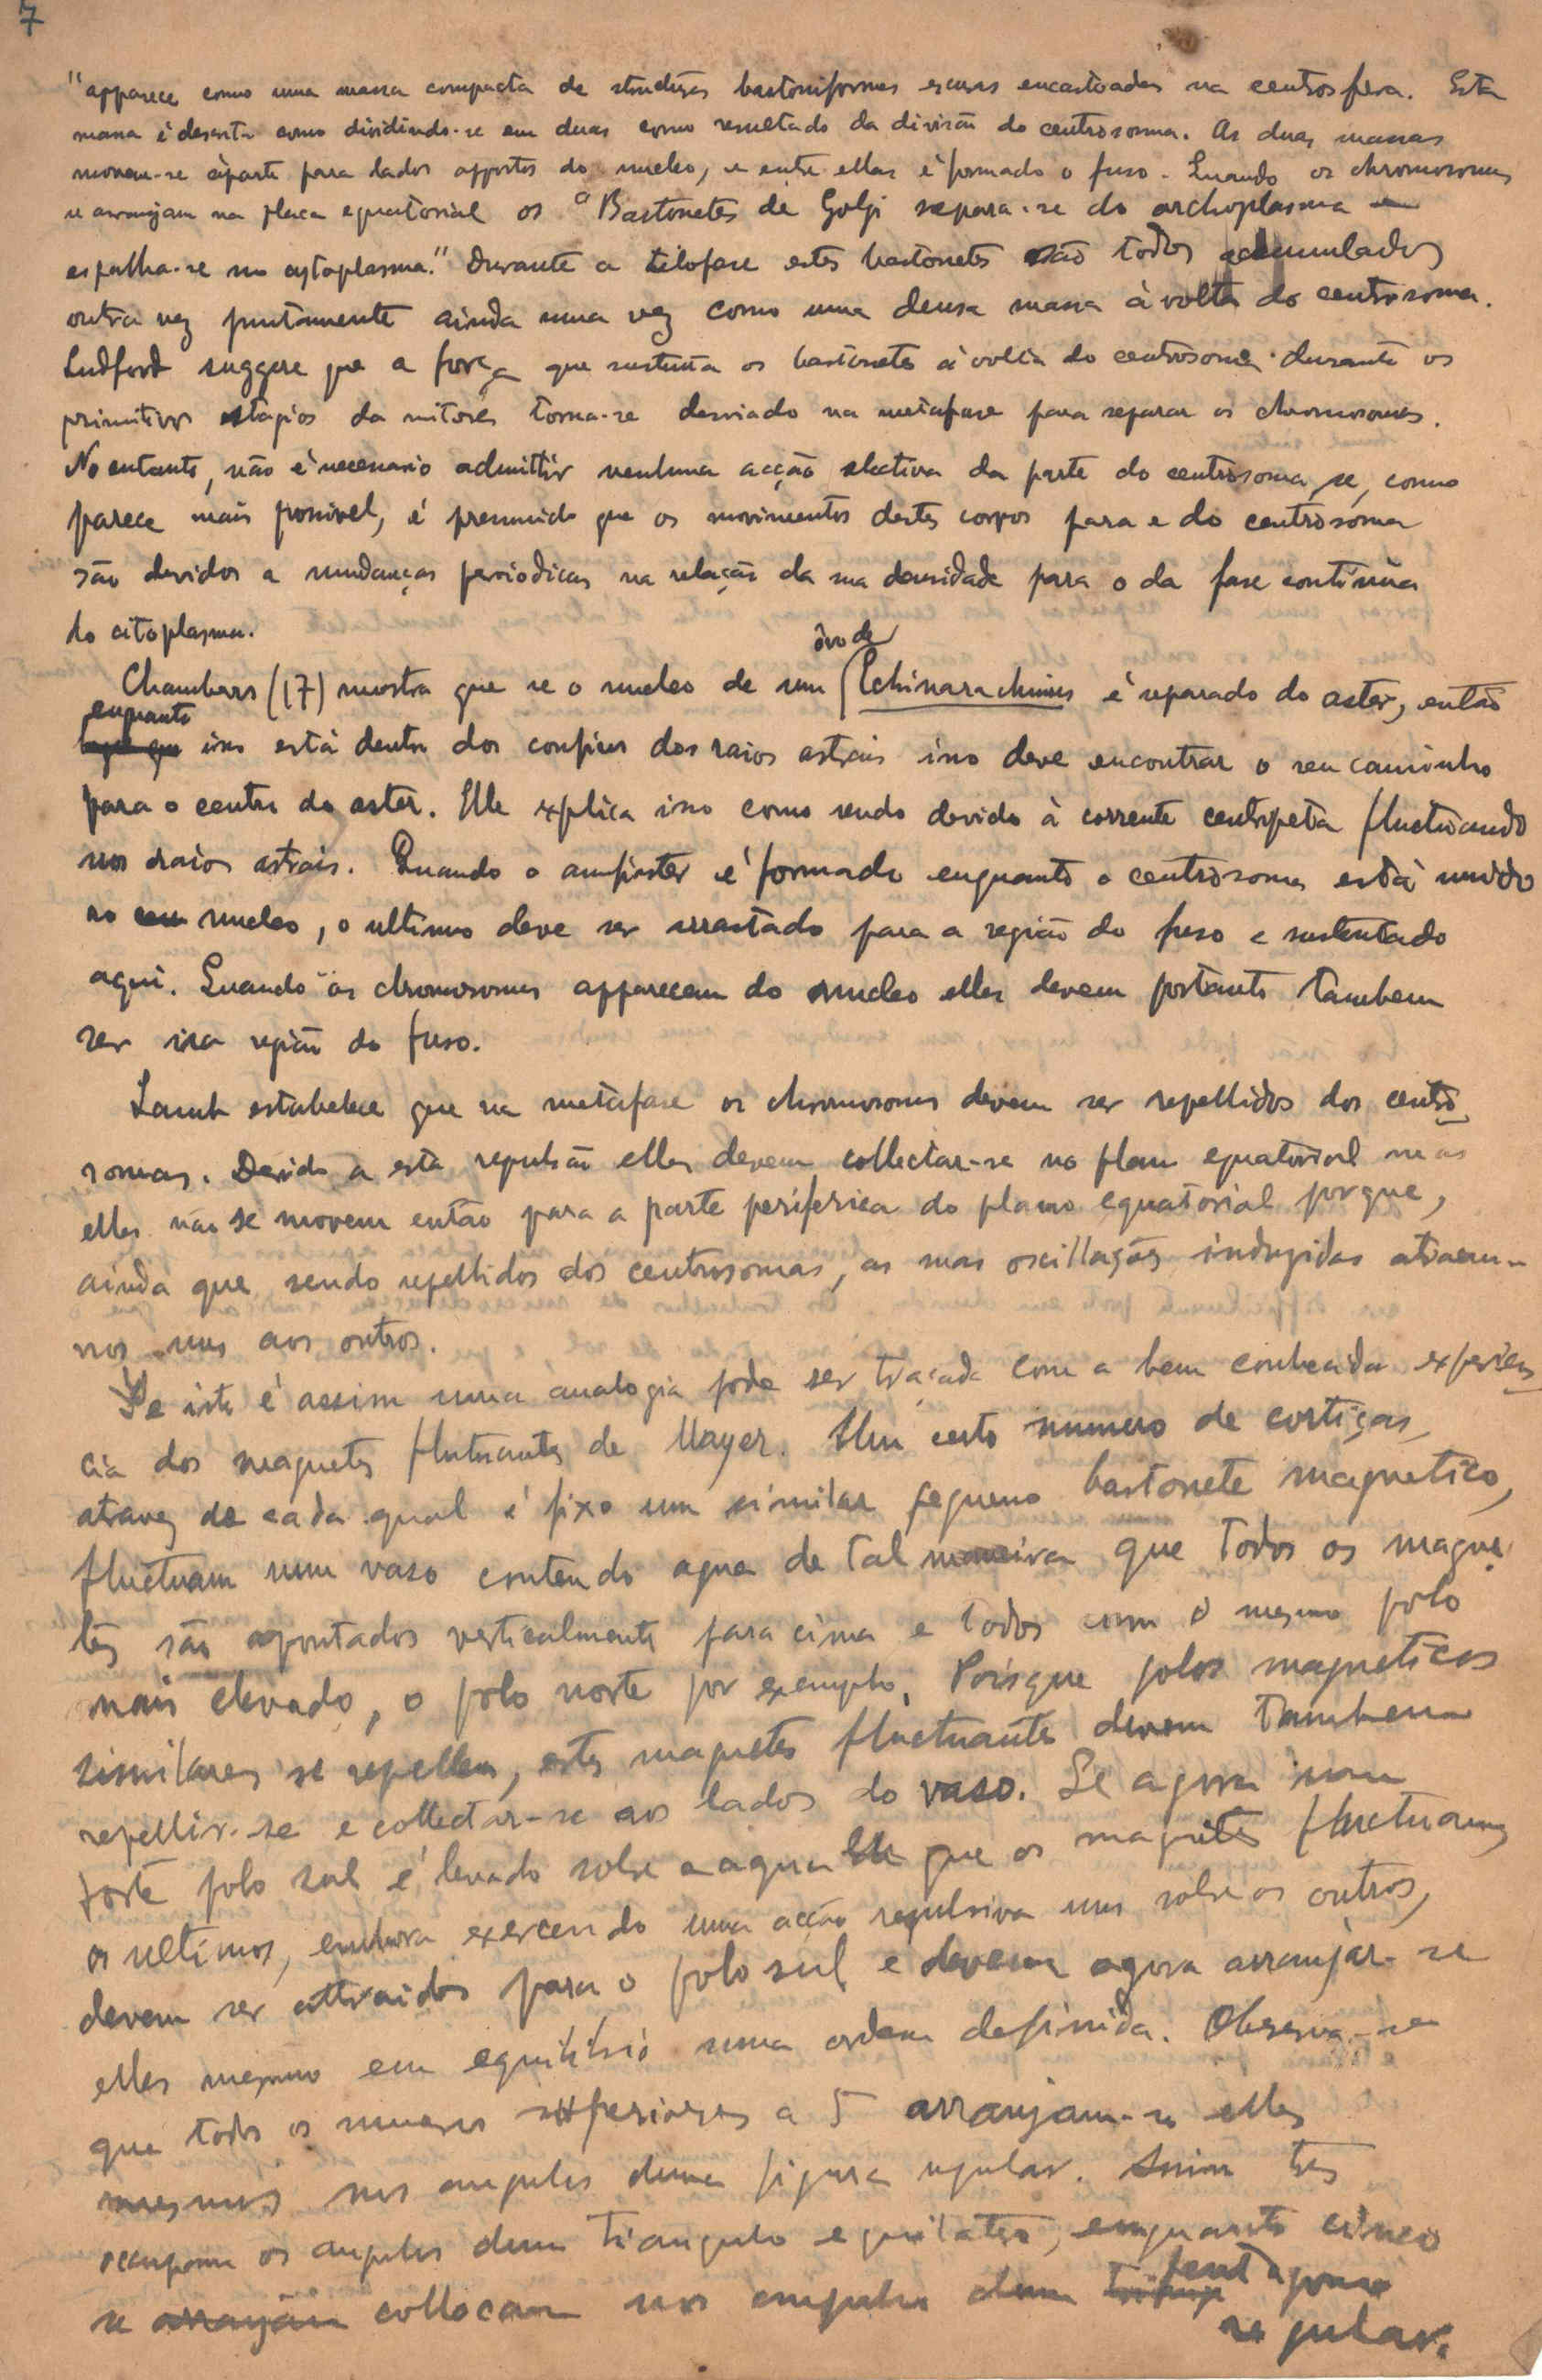 7
"apparece como uma massa compacta de bastoniformes encastoadas na centrosfera. Esta
massa é descrita como dividindo-se em duas como resultado da divisão do centrosoma. As duas massas
movem-se áparte para lados oppostos do nucleo, e entre ellas é formado o fuso. Quando os chromosomas
se arranjam na placa equatorial os "Bastonetes de Golgi separa-se do archoplasma e
espalha-se no cytoplasma." Durante a telofase estes bastonetes são todos accumulados
outra vez juntamente ainda uma vez como uma densa massa à volta do centrosoma.
Ludford suggere que a força que sustenta os bastonetes à volta do centrosoma durante os
primitivos estagios da mitoses torna-se desviado na metafase para separar os chromosomas.
No entanto, não é necessario admittir nenhuma acção electiva da parte do centrosoma, se, como
parece mais possivel, é presumido que os movimentos destes corpos para e do centrosoma
são devidos a mudanças periodicas na relação da sua densidade para o da fase continua
do citoplasma.
Chambers (17) mostra que se o nucleo de um ôvo de Echinarachinius é separado do aster, então
enquanto isso está dentro dos confins dos raios astrais isso deve encontrar o seu caminho
para o centro do aster. Elle explica isso como sendo devido à corrente centripeta fluctuando
nos raios astrais. Quando o amfiaster é formado enquanto o centrosoma está unido
ao nucleo, o ultimo deve ser arrastado para a região do fuso e sustentado
aqui. Quando os chromosomas apparecem do nucleo elles devem portanto tambem
ser na região do fuso.
Lamb estabelece que na metafase os chromosomas devem ser repellidos dos centro
somas. Devido a esta repulsão elles devem collectar-se no plano equatorial mas
elles não se movem então para a parte periferica do plano equatorial porque,
ainda que sendo repellidos dos centrosomas, as suas oscillações induzidas atraem-
nos uns aos outros.
Se isto é assim uma analogia pode ser traçada com a bem conhecida experien
cia dos magnetes flutuantes de Mayer. Um certo numero de cortiças,
atravez de cada qual é fixo um similar pequeno bastonete magnetico,
fluctuam num vaso contendo agua de tal maneira que todos os magne
tes são apontados verticalmente para cima e todos com o mesmo polo
mais elevado, o polo norte por exemplo. Poisque polos magneticos
similares se repellem, estes magnetes fluctuantes devem tambem
repellir-se e collectar-se aos lados do vaso. Se agora um
forte polo sul é levado sobre a agua em que os magnetes fluctuam,
os ultimos, embora exercendo uma acção repulsiva uns sobre os outros,
devem ser attraidos para o polo sul e devem agora arranjar-se
elles mesmo em equilibrio numa ordem definida. Observa-se
que todos os numeros inferiores a 5 arranjam-se elles
mesmos nos angulos duma figura regular. Assim tres
occupam os angulos dum triangulo equilatero, enquanto cinco
se arranjam collocam nos angulos dum pentagono
regular.